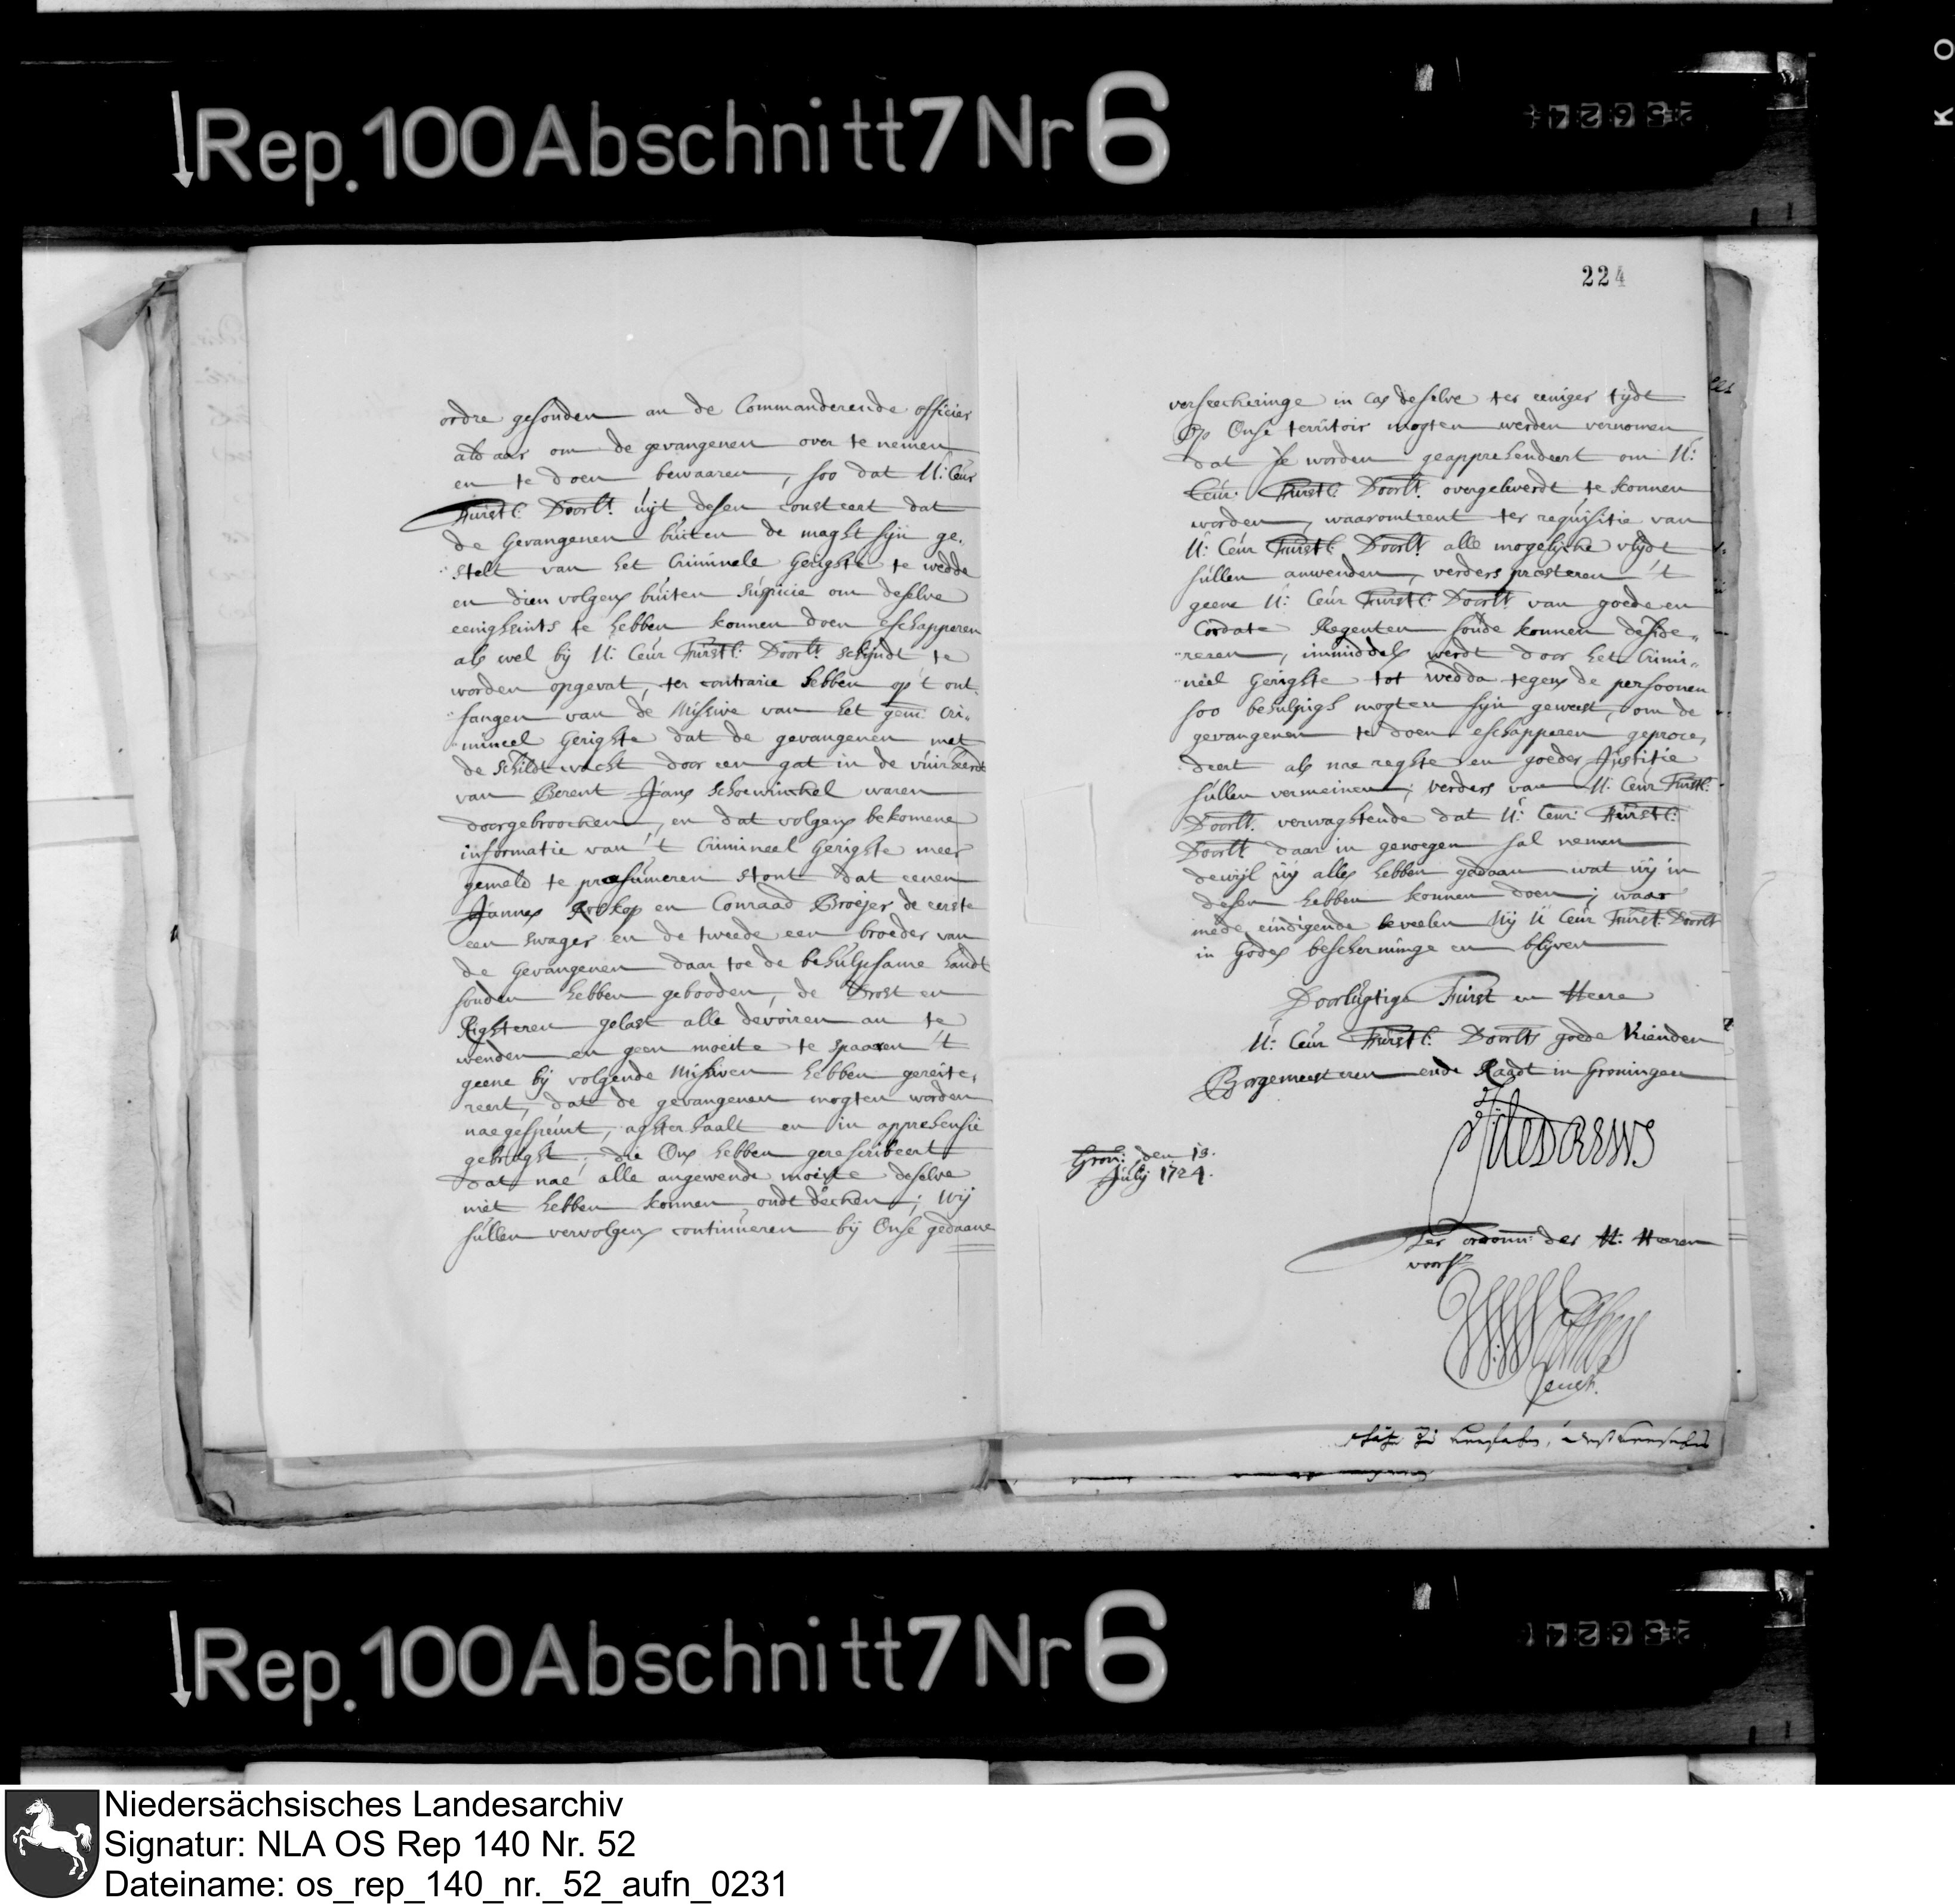 Rep. 100 Abschnitt 7 Nr 6
ordre gesonden an de Commanderende officier
aldaar om de gevangenen over te nemen
en te doen bewaaren, soo dat U: Ceur
Fürstl: Doorl.t uijt desen consteert dat
de Gevangenen buiten de maght sijn ge-
stelt van het Criminele Gerigte te wedde
en dien volgens buiten suspicie om deselve
eenighsints te hebben konnen doen eschapperen
als wel bij U: Ceur Fürstl: Doorl.t schijndt te
worden opgevat, ter contrarie hebben op 't ont-
fangen van de Missive van het gem: Cri-
mineel Gerighte dat de gevangenen met
de schildtwacht door een gat in de vuirheerdt
van Berent Jans Schoewinckel waren
doorgebroocken, en dat volgens bekomene
informatie van 't Crimineel Gerighte meer
gemeld te præsumeren stont dat eenen
Jannes Rotkop en Conraad Broejer de eerste
een swager en de tweede een broeder van
de Gevangenen daar toe de behulpsame handt
souden hebben gebooden, de Drost en
Righteren gelast alle devoiren an te
wenden en geen moeite te spaaren 't
geene bij volgende Missiven hebben gereite-
reert, dat de gevangenen mogten worden
naegespeurt, aghterhaalt en in apprehensie
gebraght; die Ons hebben gerescribeert
dat nae alle angewende moeite deselve
niet hebben konnen ondtdecken; Wij
sullen vervolgens continueren bij Onse gedaane
224
verseeckeringe in cas deselve ter eeniger tijdt
Op Onse territoir mogten werden vernomen
dat se worden geapprehendeert om U:
Ceur: Fürstl: Doorl.t overgeleverdt te konnen
worden, waaromtrent ter requisitie van
U: Ceur Fürstl: Doorl.t alle mogelijcke vlijdt
sullen anwenden, verders præsteren 't
geene U: Ceur Fürstl: Doorl.t van goede en
Cordate Regenten soude konnen deside-
reren, inmiddels werdt door het Crimi-
neel Gerighte tot Wedda tegens de persoonen
soo behulpigh mogten sijn geweest, om de
gevangenen te doen eschapperen geproce-
deert als nae reghte en goeder Justitie
sullen vermeinen; verders van U: Ceur Fürstl:
Doorl.t verwaghtende dat U: Ceur: Fürstl:
Doorl.t daar in genoegen sal nemen
dewijl wij alles hebben gedaan wat wij in
desen hebben konnen doen; waar
mede eindigende beveelen Wij U Ceur Fürstl: Doorl.t
in Godes bescherminge en blijven
Doorlugtige Fürst en Heere
U: Ceur Fürstl: Doorl.ts goede Vrienden
Borgemeesteren ende Raadt in Groningen
Gron: den 18.
Julij 1724.
Ter ordonn: der H: Heeren
voors.
Secret.
Rep. 100 Abschnitt 7 Nr 6
Niedersächsisches Landesarchiv
Signatur: NLA OS Rep 140 Nr. 52
Dateiname: os_rep_140_nr._52_aufn_0231